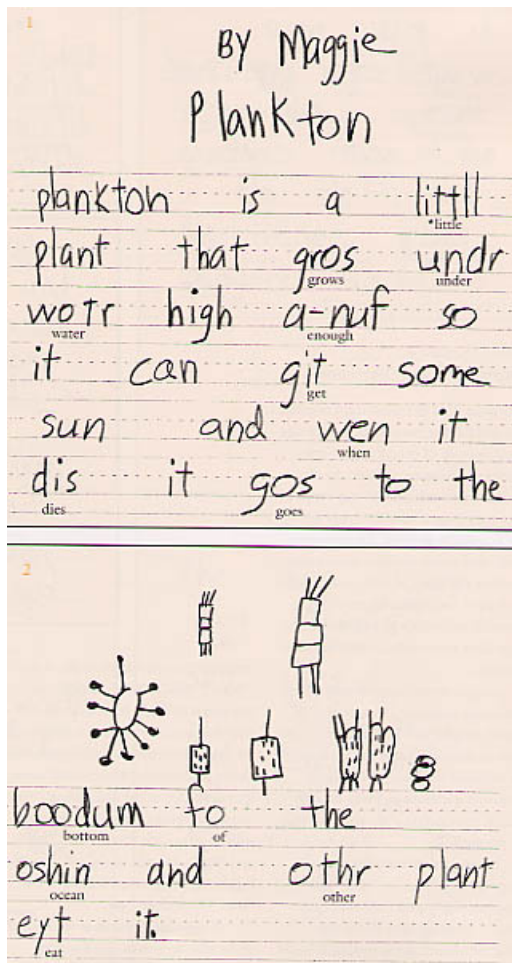 1
BY Maggie
Plankton
plankton is a littll
*little
plant that gros undr
grows under
wotr high a-nuf so
water enough
it can git some
get
sun and wen it
when
dis it gos to the
dies goes
2
boodum fo the
bottom of
oshin and othr plant
ocean other
eyt it.
eat